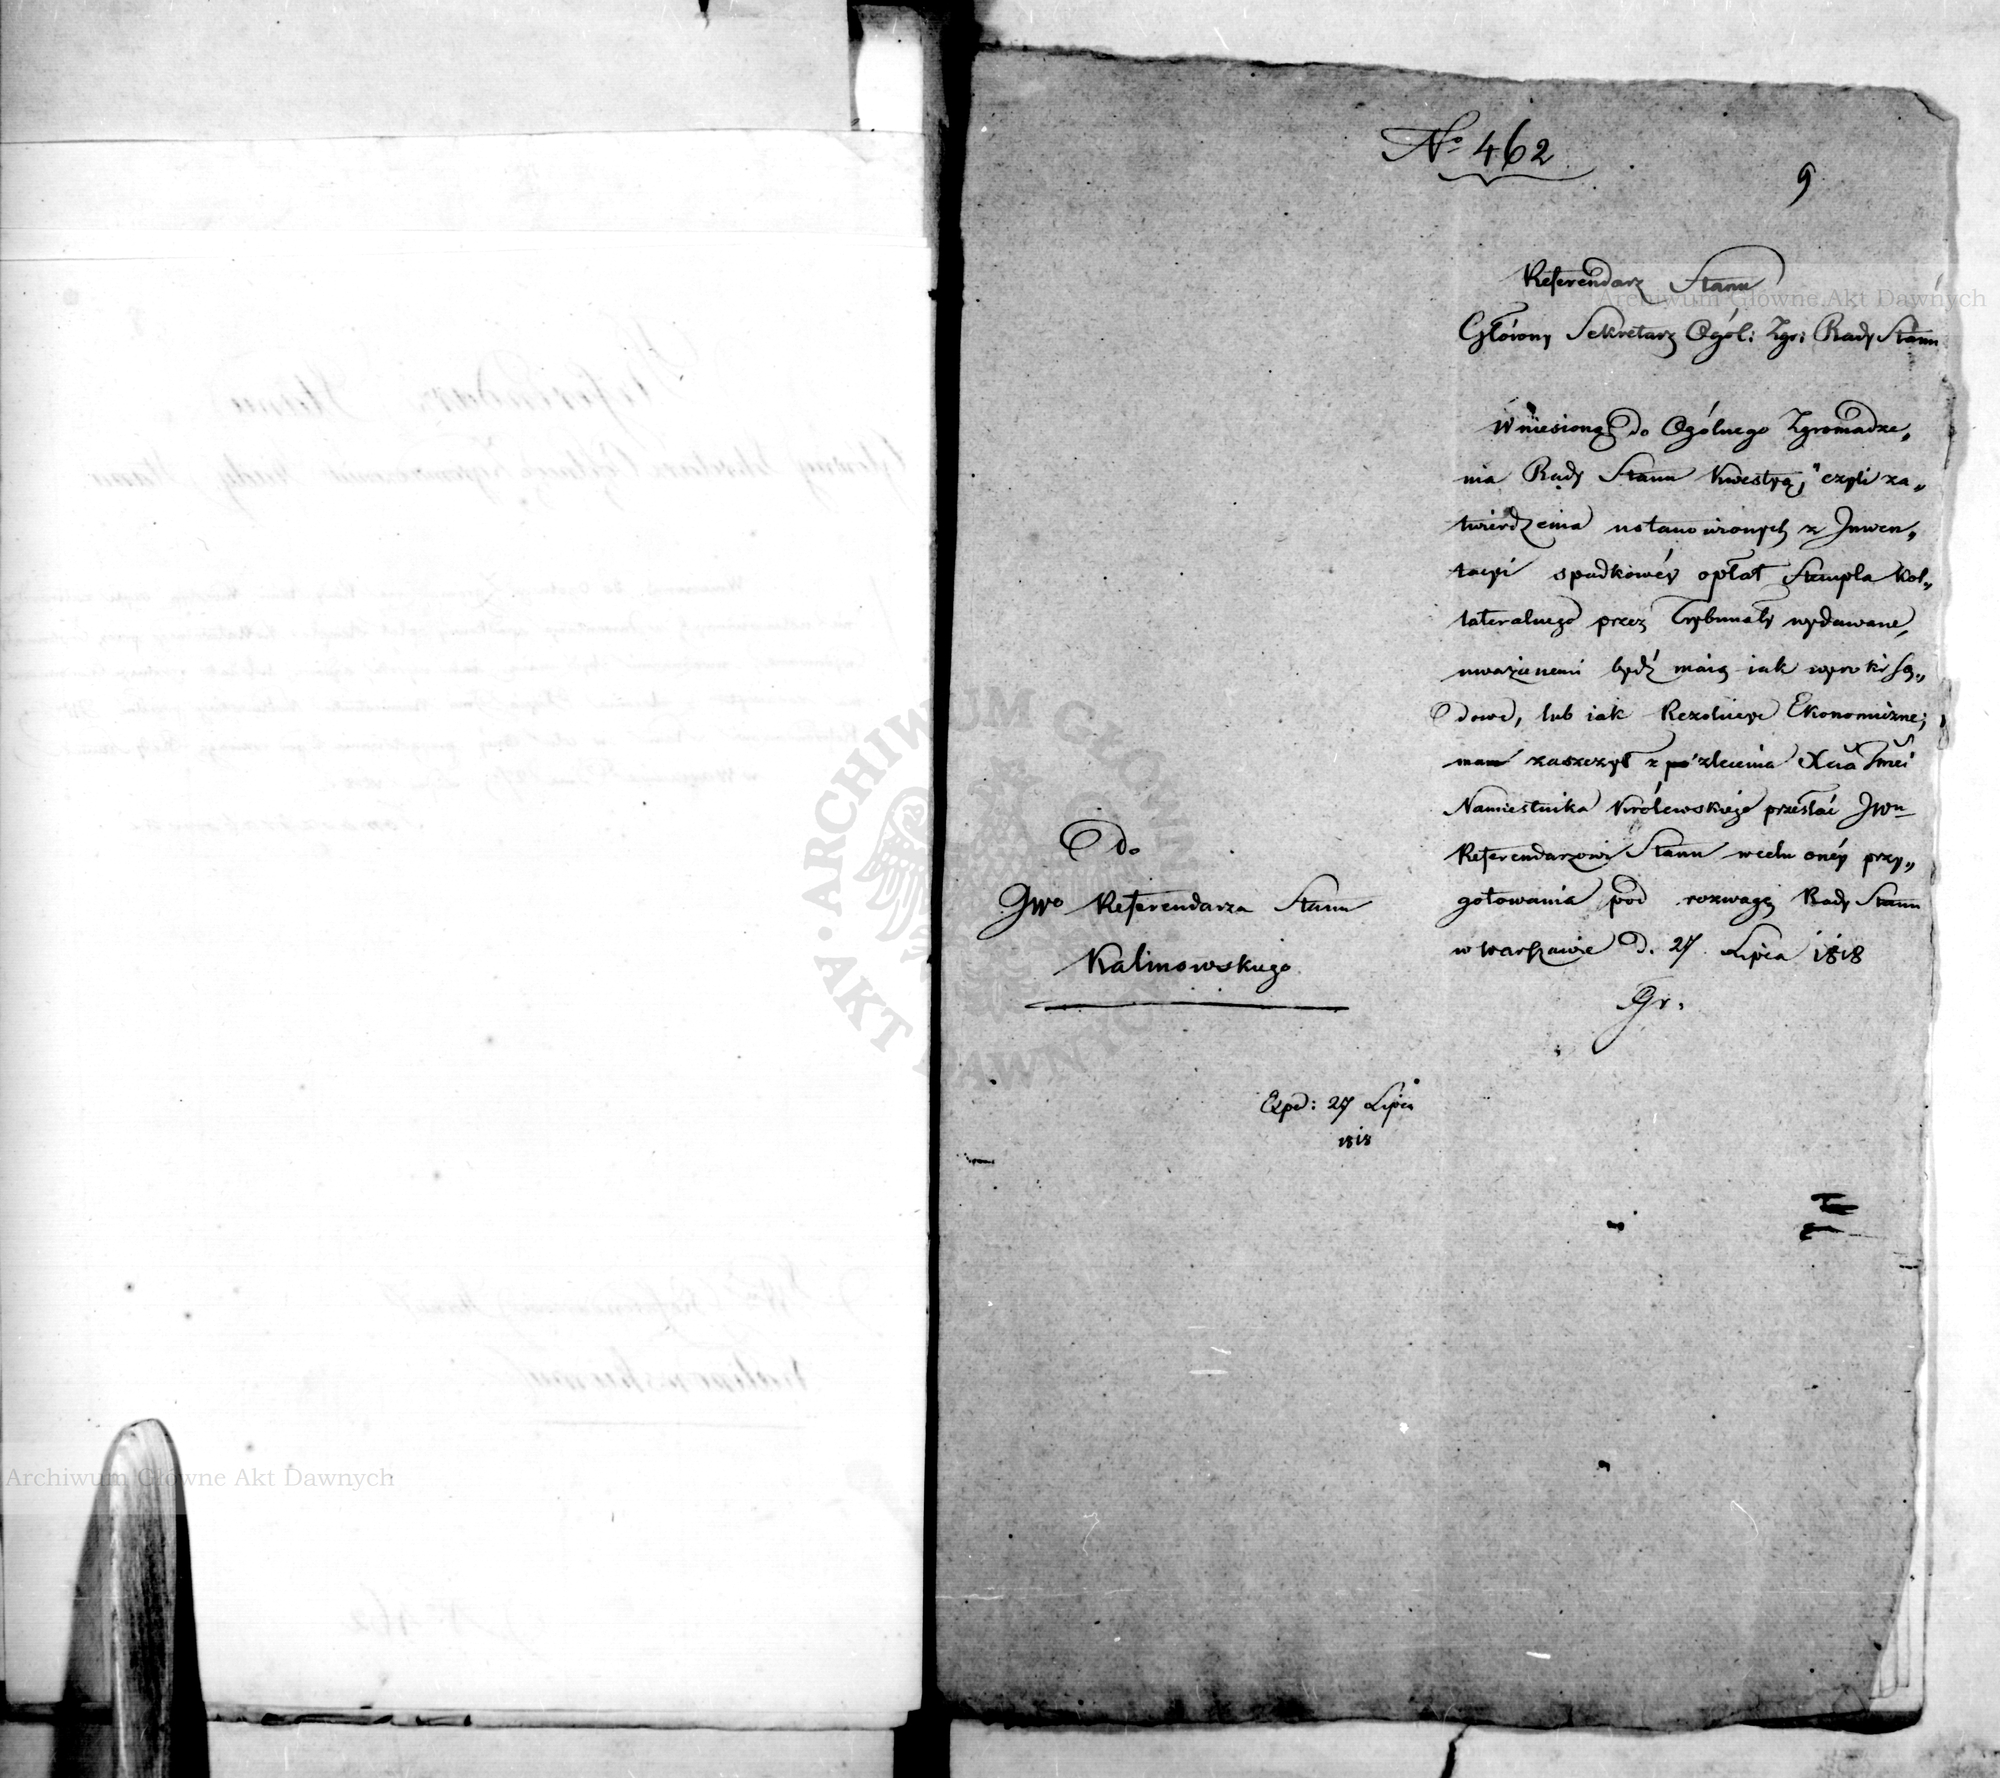 No 462
9
Referendarz Stanu
Główny Sekretarz Ogól: Zgr: Rady Stanu
Wniesioną do Ogólnego Zgromadze„
nia Rady Stanu Kwestyą, "czyli za„
twierdzenia ustanowionych z Inwen„
tacyi spadkowéy opłat Stempla Kol„
lateralnego przez Trybunały wydawane,
uważanemi bydź maią iak wyroki Są„
dowe, lub iak Rezolucye Ekonomiczne;
mam zaszczyt z zlecenia Xcia Jmci
Namiestnika Królewskiego przesłać JWu
Referendarzowi Stanu wcelu onéy przy„
gotowania pod rozwagę Rady Stanu
w Warszawie d. 27 Lipca 1818
Gr.
Do
JWo Referendarza Stanu
Kalinowskiego
Exped: 27 Lipca
1818
Archiwum Główne Akt Dawnych
ARCHIWUM GŁÓWNE
AKT DAWNYCH
Archiwum Główne Akt Dawnych